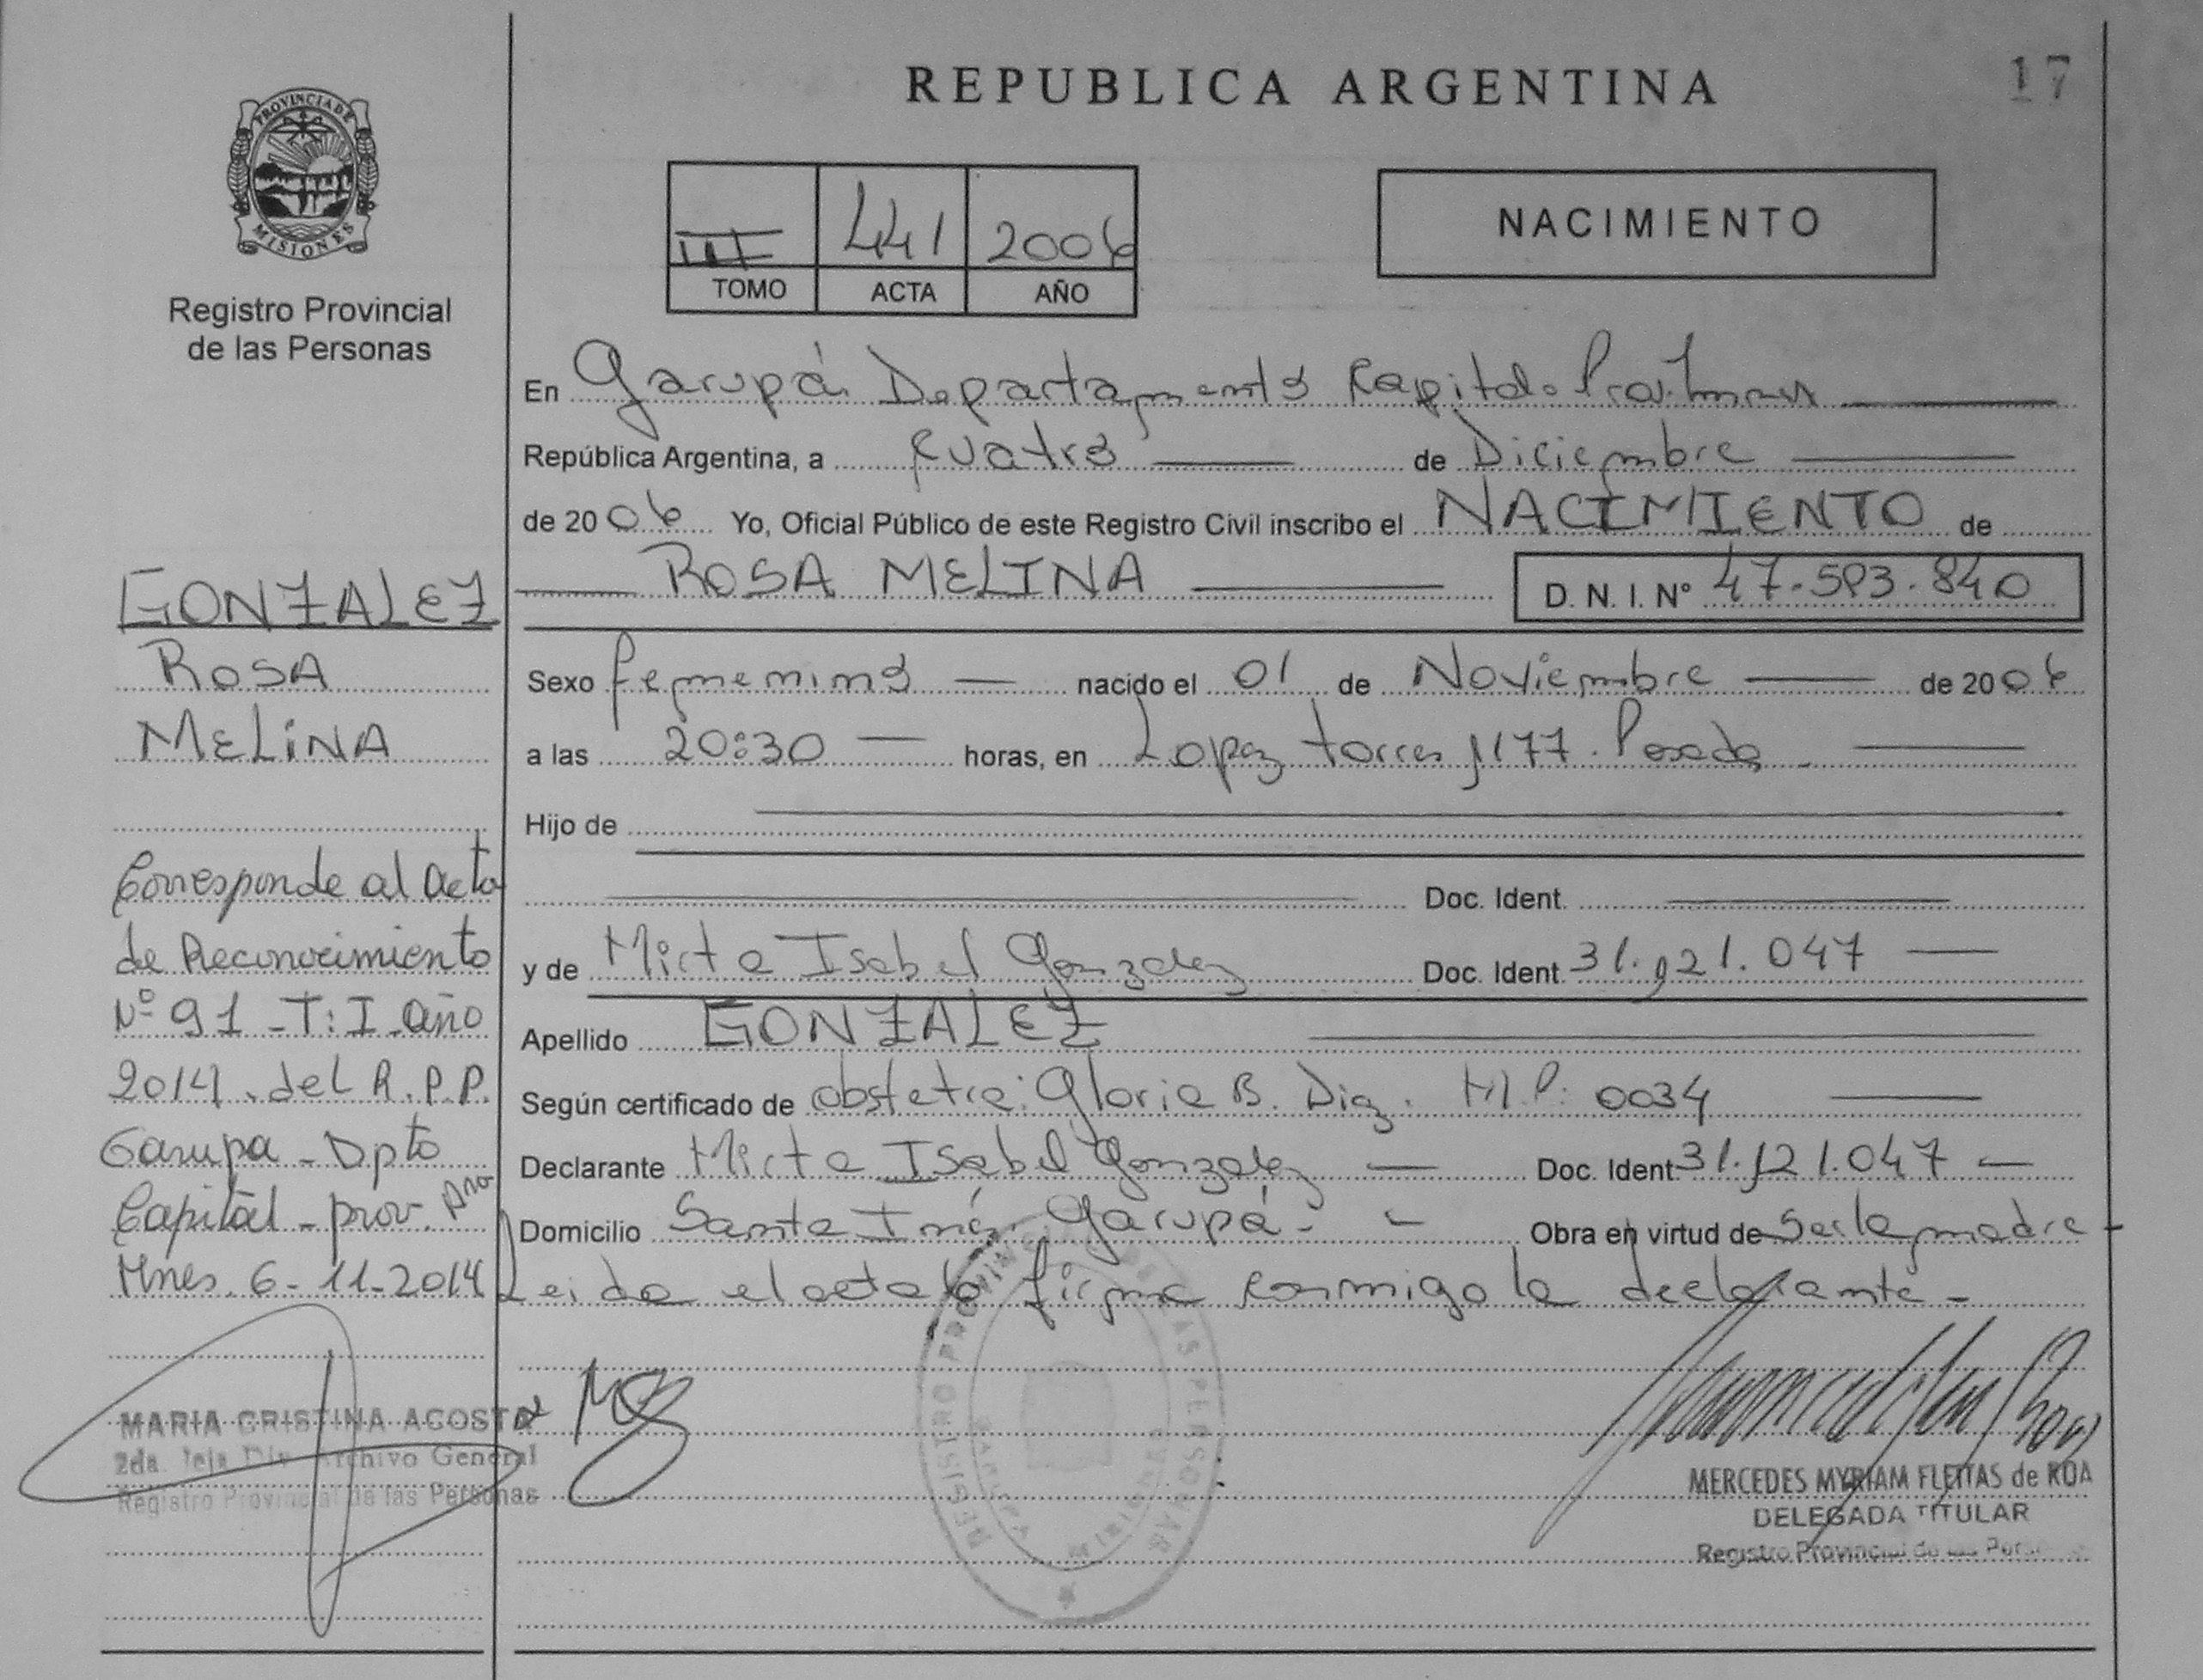 REPUBLICA ARGENTINA
17
PROVINCIA DE
MISIONES
Registro Provincial
de las Personas
III 441 2006
TOMO ACTA AÑO
NACIMIENTO
En Garupá Departamento Capital Prov. Mnes
República Argentina, a cuatro de Diciembre
de 2006 Yo, Oficial Público de este Registro Civil inscribo el NACIMIENTO de
ROSA MELINA D. N. I. Nº 47.593.840
Sexo femenino nacido el 01 de Noviembre de 2006
a las 20:30 horas, en Lopez Torres 1177. Posadas
Hijo de
Doc. Ident.
y de Mirta Isabel Gonzalez Doc. Ident. 31.921.047
Apellido GONZALEZ
Según certificado de obstetra: Gloria B. Diaz. M.P: 0034
Declarante Mirta Isabel Gonzalez Doc. Ident. 31.921.047
Domicilio Santa Inés. Garupá Obra en virtud de Ser la madre
Leida el acta la firma conmigo la declarante
GONZALEZ
ROSA
MELINA
Corresponde al acta
de Reconocimiento
Nº 91 - T: I - año
2014. del R.P.P.
Garupa - Dpto
Capital - prov.
Mnes. 6-11-2014
MARIA CRISTINA ACOSTA
2da. Jefa Div. Archivo General
Registro Provincial de las Personas
REGISTRO PROVINCIAL DE LAS PERSONAS
GARUPA MISIONES
MERCEDES MYRIAM FLEITAS de ROA
DELEGADA TITULAR
Registro Provincial de las Personas